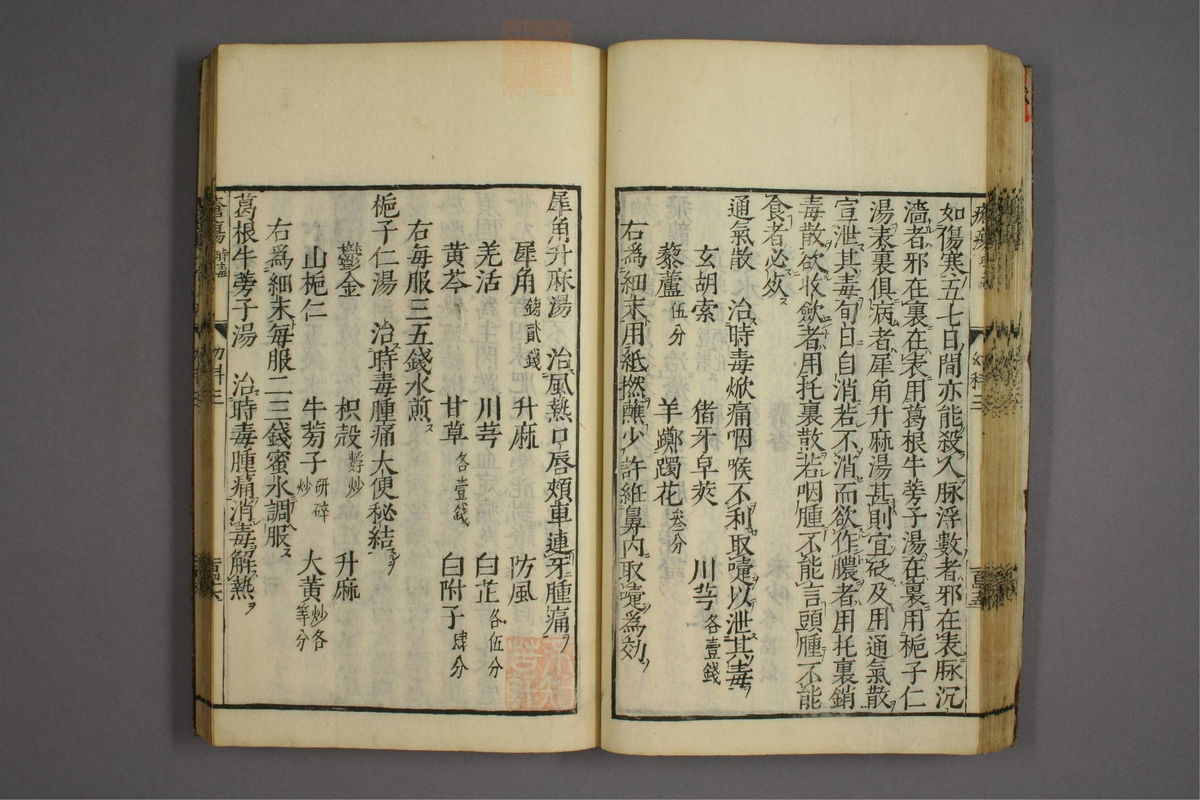 如傷寒五七日間亦能殺人脉浮數者邪在表脉沉
濇者邪在裏在表用葛根牛蒡子湯在裏用梔子仁
湯表裏俱病者犀角升麻湯甚則宜砭及用通氣散
宣泄其毒旬日自消若不消而欲作膿者用托裏銷
毒散欲收斂者用托裏散若咽腫不能言頭腫不能
食者必死ス
通氣散　治時毒焮痛咽喉不利取嚏以泄其毒
玄胡索　猪牙皁莢　川芎各壹錢
藜蘆伍分　羊躑躅花叁分
右爲細末用紙撚蘸少許絍鼻内取嚏爲効
犀角升麻湯　治風熱口唇頰車連牙腫痛
犀角鎊貳錢　升麻　防風
羌活　川芎　白芷各伍分
黄芩　甘草各壹錢　白附子肆分
右每服三五錢水煎ス
梔子仁湯　治時毒腫痛大便秘結
鬱金　枳殻麩炒　升麻
山梔仁　牛蒡子研碎炒　大黄炒各等分
右爲細末每服二三錢蜜水調服ス
葛根牛蒡子湯　治時毒腫痛消毒解熱ヲ